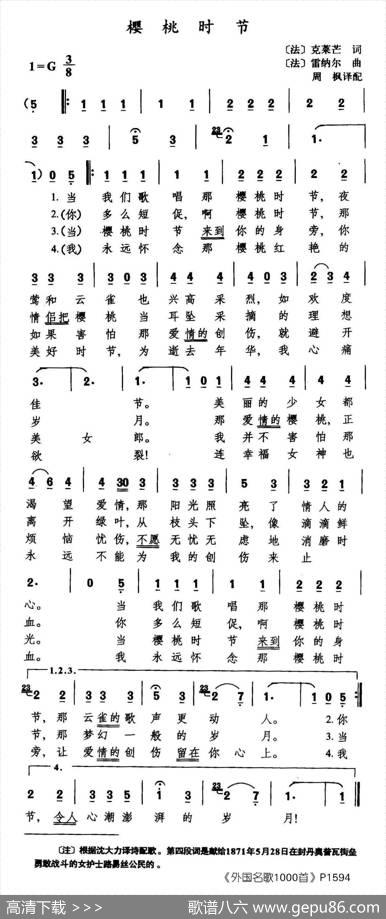 樱桃时节
1=G 3/8
〔法〕克莱芒 词
〔法〕雷纳尔 曲
周 枫译配
(5 1 1 1 1 1 1 2 2 2 2 2 2
3 3 3 5 3 2 2 1
1) 0 5 1 1 1 1 1 1 2 2 2 2 2 2
1.当 我们歌 唱那 樱桃时 节,夜
2.(你) 多么短 促,啊 樱桃时 节,那
3.(当) 樱桃当 节来到 你的身 旁,你
4.(我) 永远怀 念那 樱桃红 艳的
莺和云 雀也 兴高采 烈,如 欢度
情侣把樱桃 当 耳坠采 摘的 理想
如果害 怕那 爱情的创 伤,就 避开
美好时 节,为 逝去年 华,我 心痛
3. 2. 1. 1 0 1 4 4 4 4 4 4
佳 节。 美 丽的少 女都
岁 月。 那 爱情的樱 桃,正
美 女 郎。 我 并不害 怕那
欲 裂! 连 幸福女 神也
渴 望 爱情,那 阳光照 亮了 情人的
离 开 绿叶,从 枝头下 坠,像 滴滴鲜
烦 恼 忧伤,不愿 无忧无 虑地 消磨时
永 远 不能为 我的创 伤来 止
2. 0 5 1 1 1 1 1 1 2 2 2
心。 当 我们歌 唱那 樱桃时
血。 你 多么短 促,啊 樱桃时
光。 当 樱桃时 节来到 你的身
血。 我 永远怀 念那 樱桃时
1.2.3.
节,那 云雀的歌 声更动 人。 2.你
节,那 梦幻一 般的岁 月。 3.当
旁,让 爱情的创 伤留在 你心上。 4.我
4.
节,令人 心潮澎 湃的岁 月!
〔注〕根据沈大力译诗配歌。第四段词是献给1871年5月28日在封丹奥普瓦街垒
勇敢战斗的女护士路易丝公民的。
《外国名歌1000首》P1594
高清下载 > 歌谱八六 > www.gepu86.com